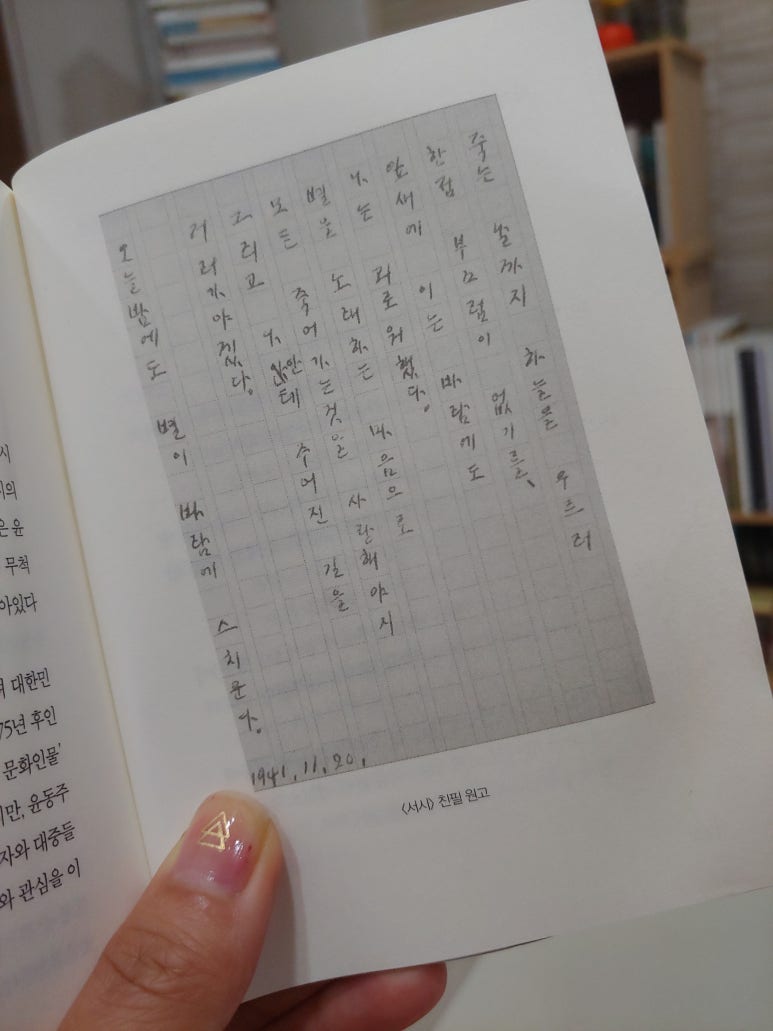 시
은 윤
무척
아있다
대한민
75년 후인
문화인물'
만, 윤동주
자와 대중들
와 관심을 이
죽는 날까지 하늘을 우르러
한점 부끄럼이 없기를、
잎새에 이는 바람에도
나는 괴로워했다。
별을 노래하는 마음으로
모든 죽어가는것을 사랑해야지
그리고 나안테 주어진 길을
거러가야겠다。
오늘밤에도 별이 바람에 스치운다。
1941. 11. 20.
〈서시〉 친필 원고